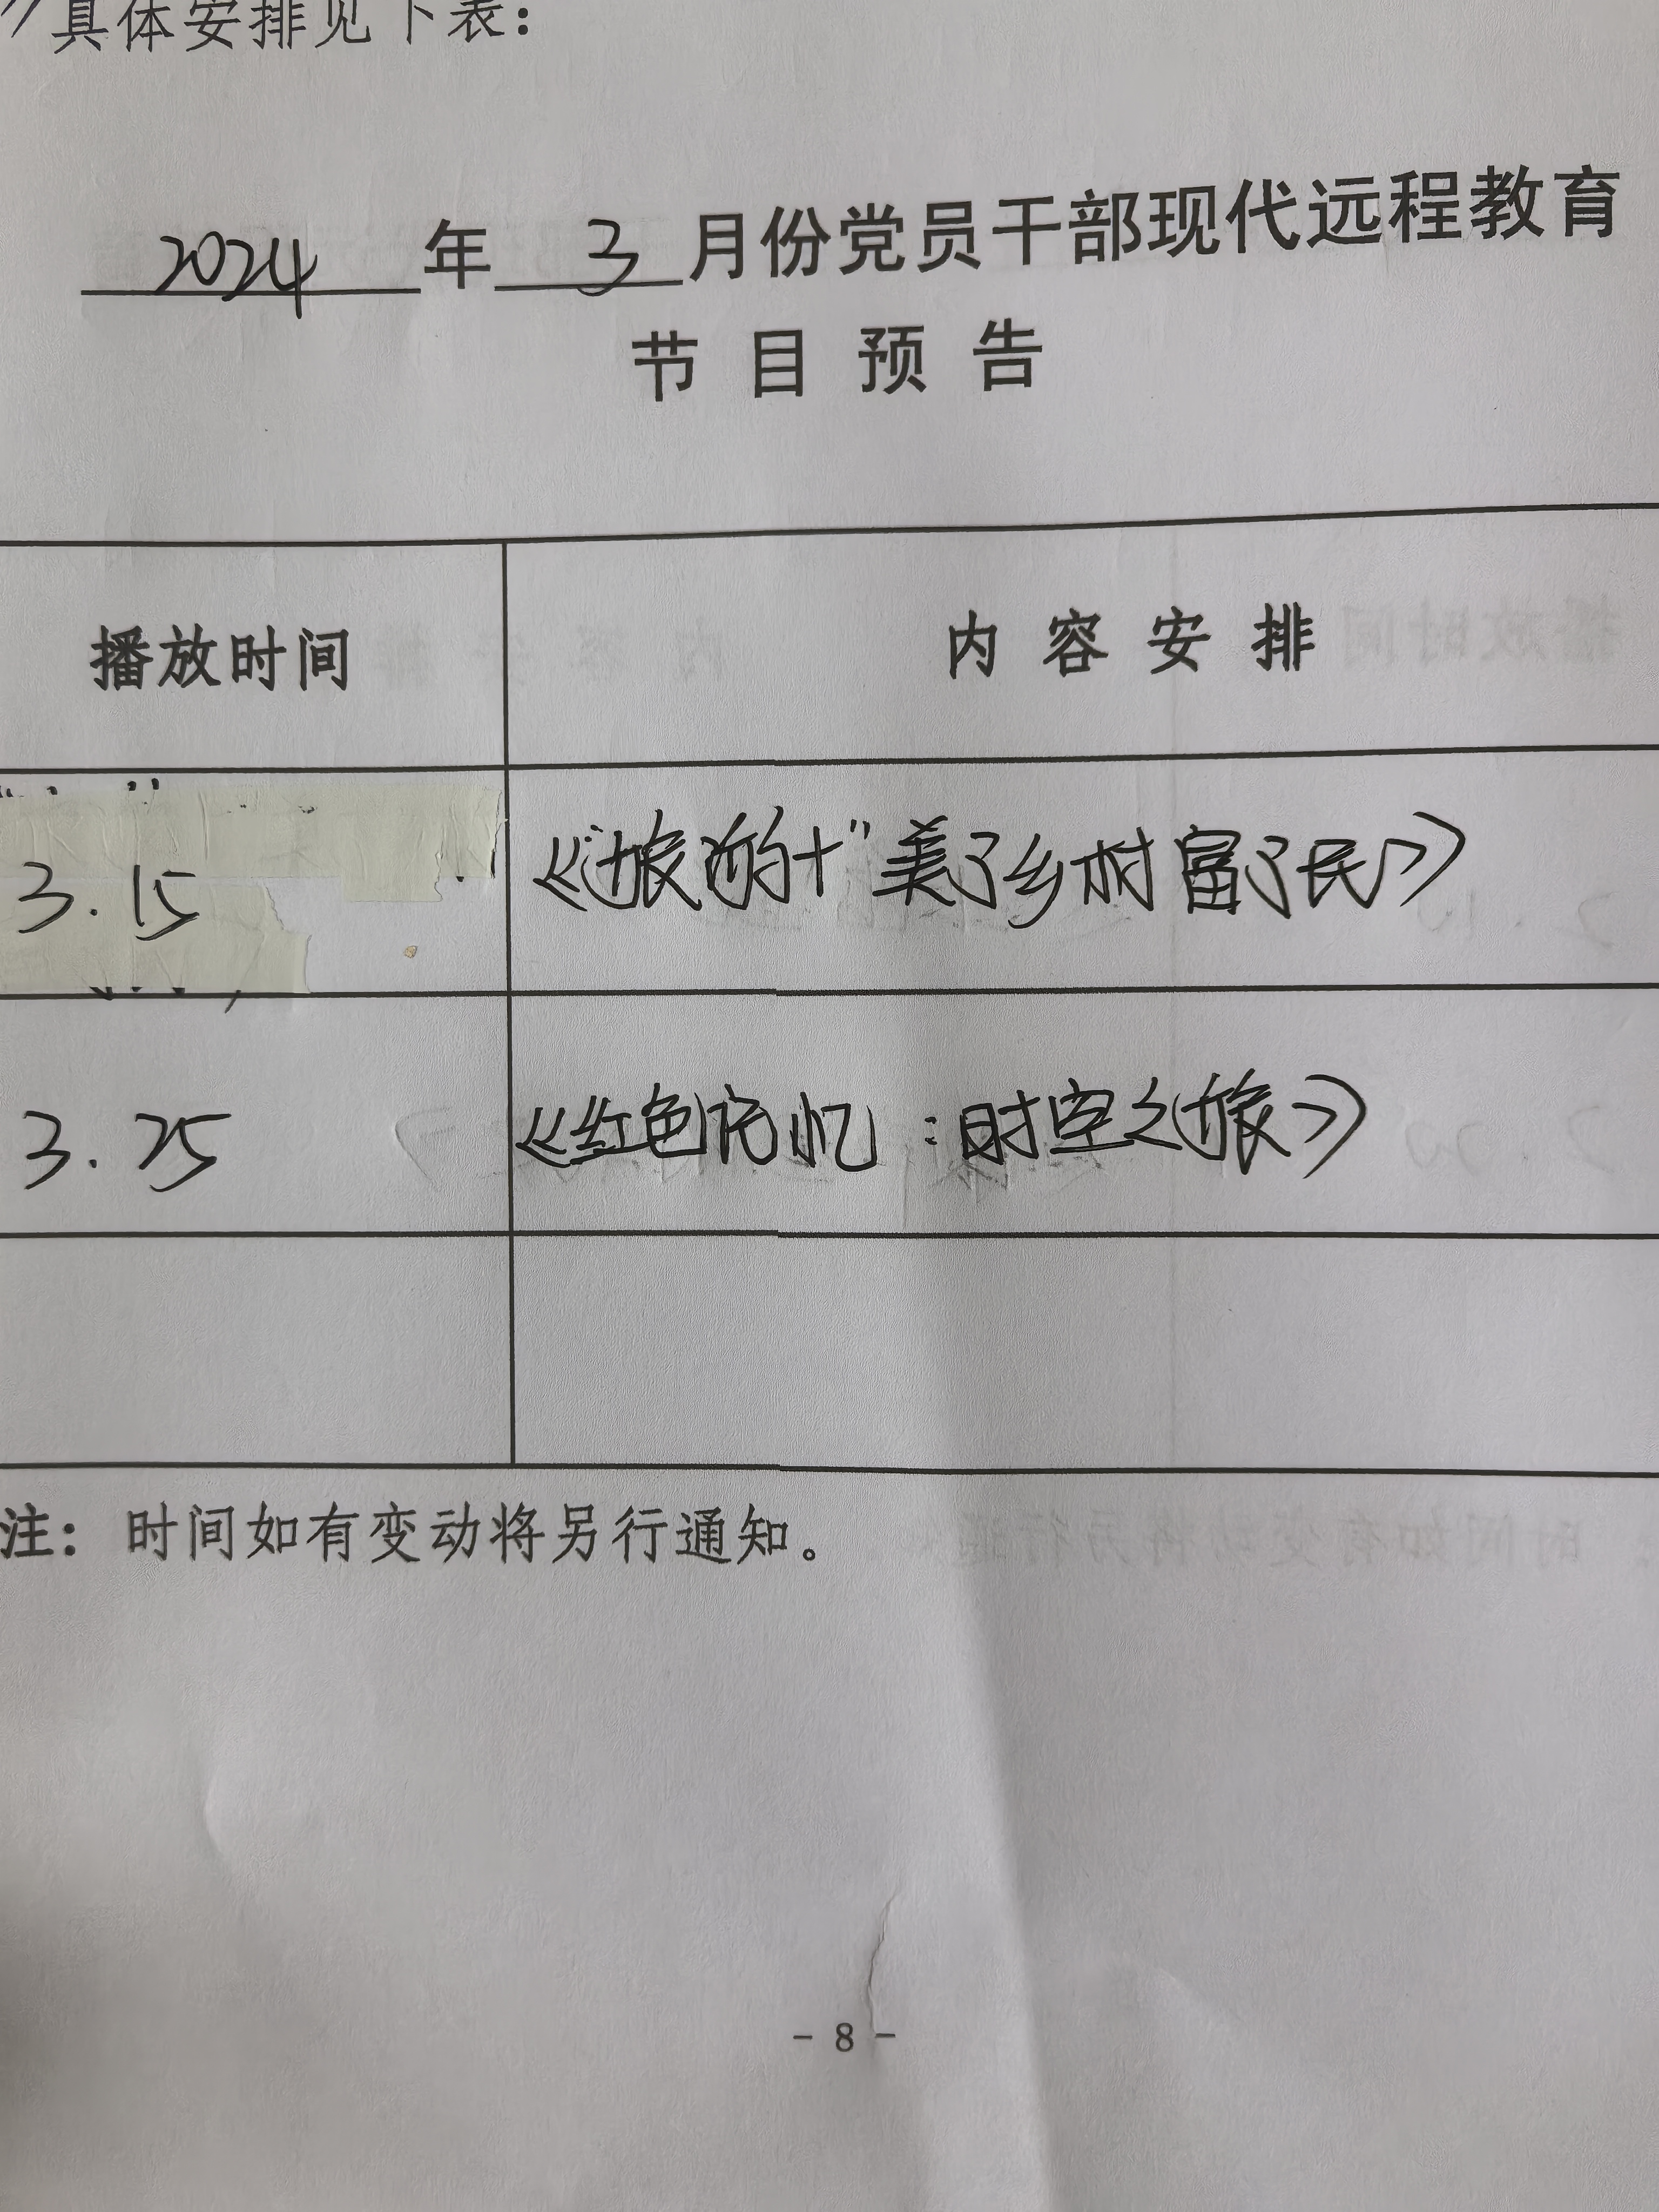 具体安排见下表：
2024年3月份党员干部现代远程教育
节目预告
播放时间 内容安排
3.15 《“旅游+”美了乡村富了民》
3.25 《红色记忆：时空之旅》
注：时间如有变动将另行通知。
- 8 -